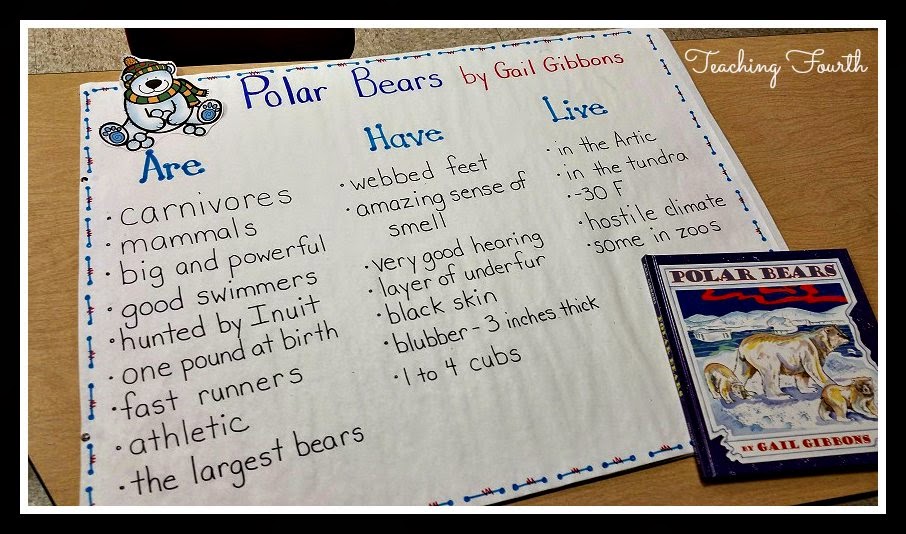 Teaching Fourth
Polar Bears by Gail Gibbons
Are
• carnivores
• mammals
• big and powerful
• good swimmers
• hunted by Inuit
• one pound at birth
• fast runners
• athletic
• the largest bears
Have
• webbed feet
• amazing sense of
smell
• very good hearing
• layer of underfur
• black skin
• blubber - 3 inches thick
• 1 to 4 cubs
Live
• in the Artic
• in the tundra
• -30 F
• hostile climate
• some in zoos
POLAR BEARS
BY GAIL GIBBONS